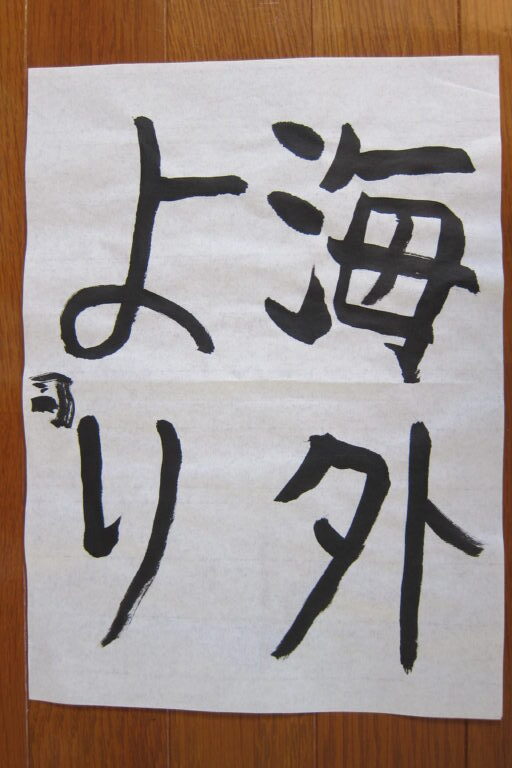 海外
より
司